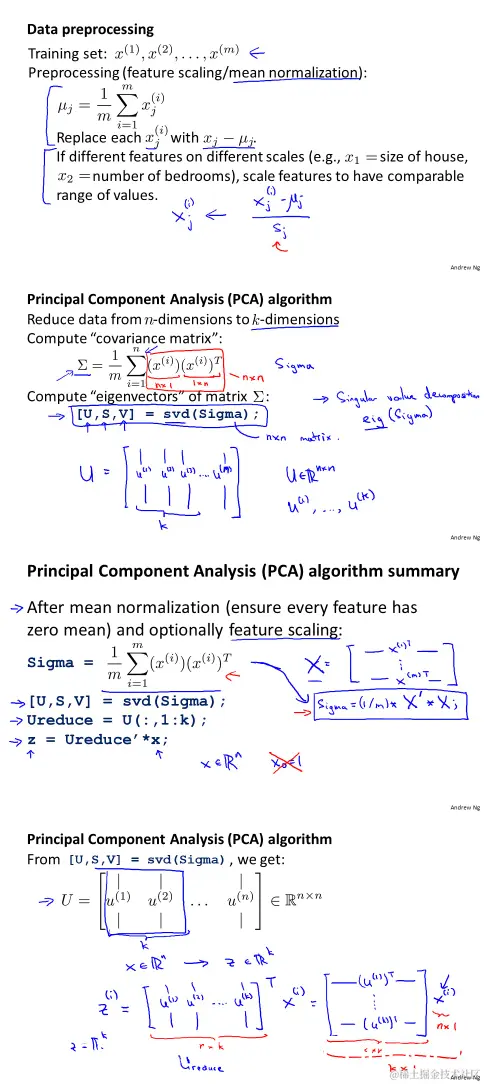 Data preprocessing
Training set: x^(1), x^(2), . . . , x^(m) ←
Preprocessing (feature scaling/mean normalization):
μ_j = 1/m ∑_{i=1}^{m} x_j^(i)
Replace each x_j^(i) with x_j − μ_j.
If different features on different scales (e.g., x_1 = size of house,
x_2 = number of bedrooms), scale features to have comparable
range of values.
x_j^(i) ← (x_j^(i) - μ_j) / s_j
Andrew Ng
Principal Component Analysis (PCA) algorithm
Reduce data from n-dimensions to k-dimensions
Compute “covariance matrix”:
Σ = 1/m ∑_{i=1}^{n} (x^(i))(x^(i))^T
n×1 1×n n×n Sigma
Compute “eigenvectors” of matrix Σ:
→ [U,S,V] = svd(Sigma);
→ Singular value decomposition
eig(Sigma)
n×n matrix.
U = [u^(1) u^(2) u^(3) ... u^(m)] U ∈ ℝ^{n×n}
k
u^(1), ..., u^(k)
Andrew Ng
Principal Component Analysis (PCA) algorithm summary
→ After mean normalization (ensure every feature has
zero mean) and optionally feature scaling:
Sigma = 1/m ∑_{i=1}^{m} (x^(i))(x^(i))^T
X = [— x^(1)T — ⋮ — x^(m)T —]
→ Sigma = (1/m) * X' * X;
→ [U,S,V] = svd(Sigma);
→ Ureduce = U(:,1:k);
→ z = Ureduce’*x;
x ∈ ℝ^n x_0=1
Andrew Ng
Principal Component Analysis (PCA) algorithm
From [U,S,V] = svd(Sigma), we get:
→ U = [u^(1) u^(2) . . . u^(n)] ∈ ℝ^{n×n}
k
x ∈ ℝ^n → z ∈ ℝ^k
z^(i) = [u^(1) u^(2) ... u^(k)]^T x^(i) = [— (u^(1))^T — ⋮ — (u^(k))^T —] x^(i)
n×1
z ∈ ℝ^k
n×k
k×1
Ureduce
@稀土掘金技术社区